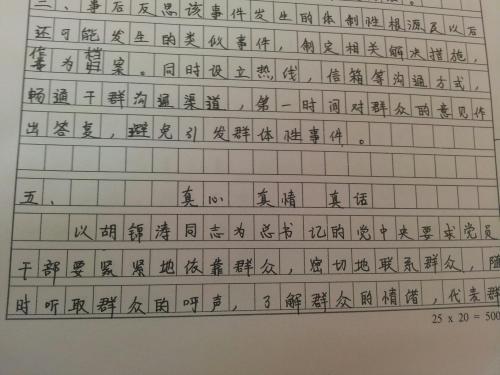 三、事后反思该事件发生的体制性根源及以后
还可能发生的类似事件，制定相关解决措施，
作为档案。同时设立热线，信箱等沟通方式，
畅通干群沟通渠道，第一时间对群众的意见作
出答复，避免引发群体性事件。
五、 真心 真情 真话
以胡锦涛同志为总书记的党中央要求党员
干部要紧紧地依靠群众，密切地联系群众，随
时听取群众的呼声，了解群众的情谱，代表群
25 x 20 = 500